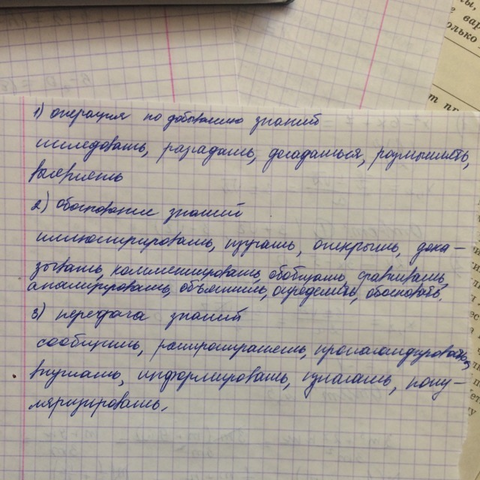 1) операция по добыванию знаний
исследовать, разгадать, догадаться, размышлять,
выяснять
2) обоснование знаний
иллюстрировать, изучать, открыть, дока-
зывать, комментировать, обобщать, сравнивать,
анализировать, объяснить, определить, обосновать.
3) передача знаний
сообщить, распространять, пропагандировать,
внушать, информировать, излагать, попу-
ляризировать.